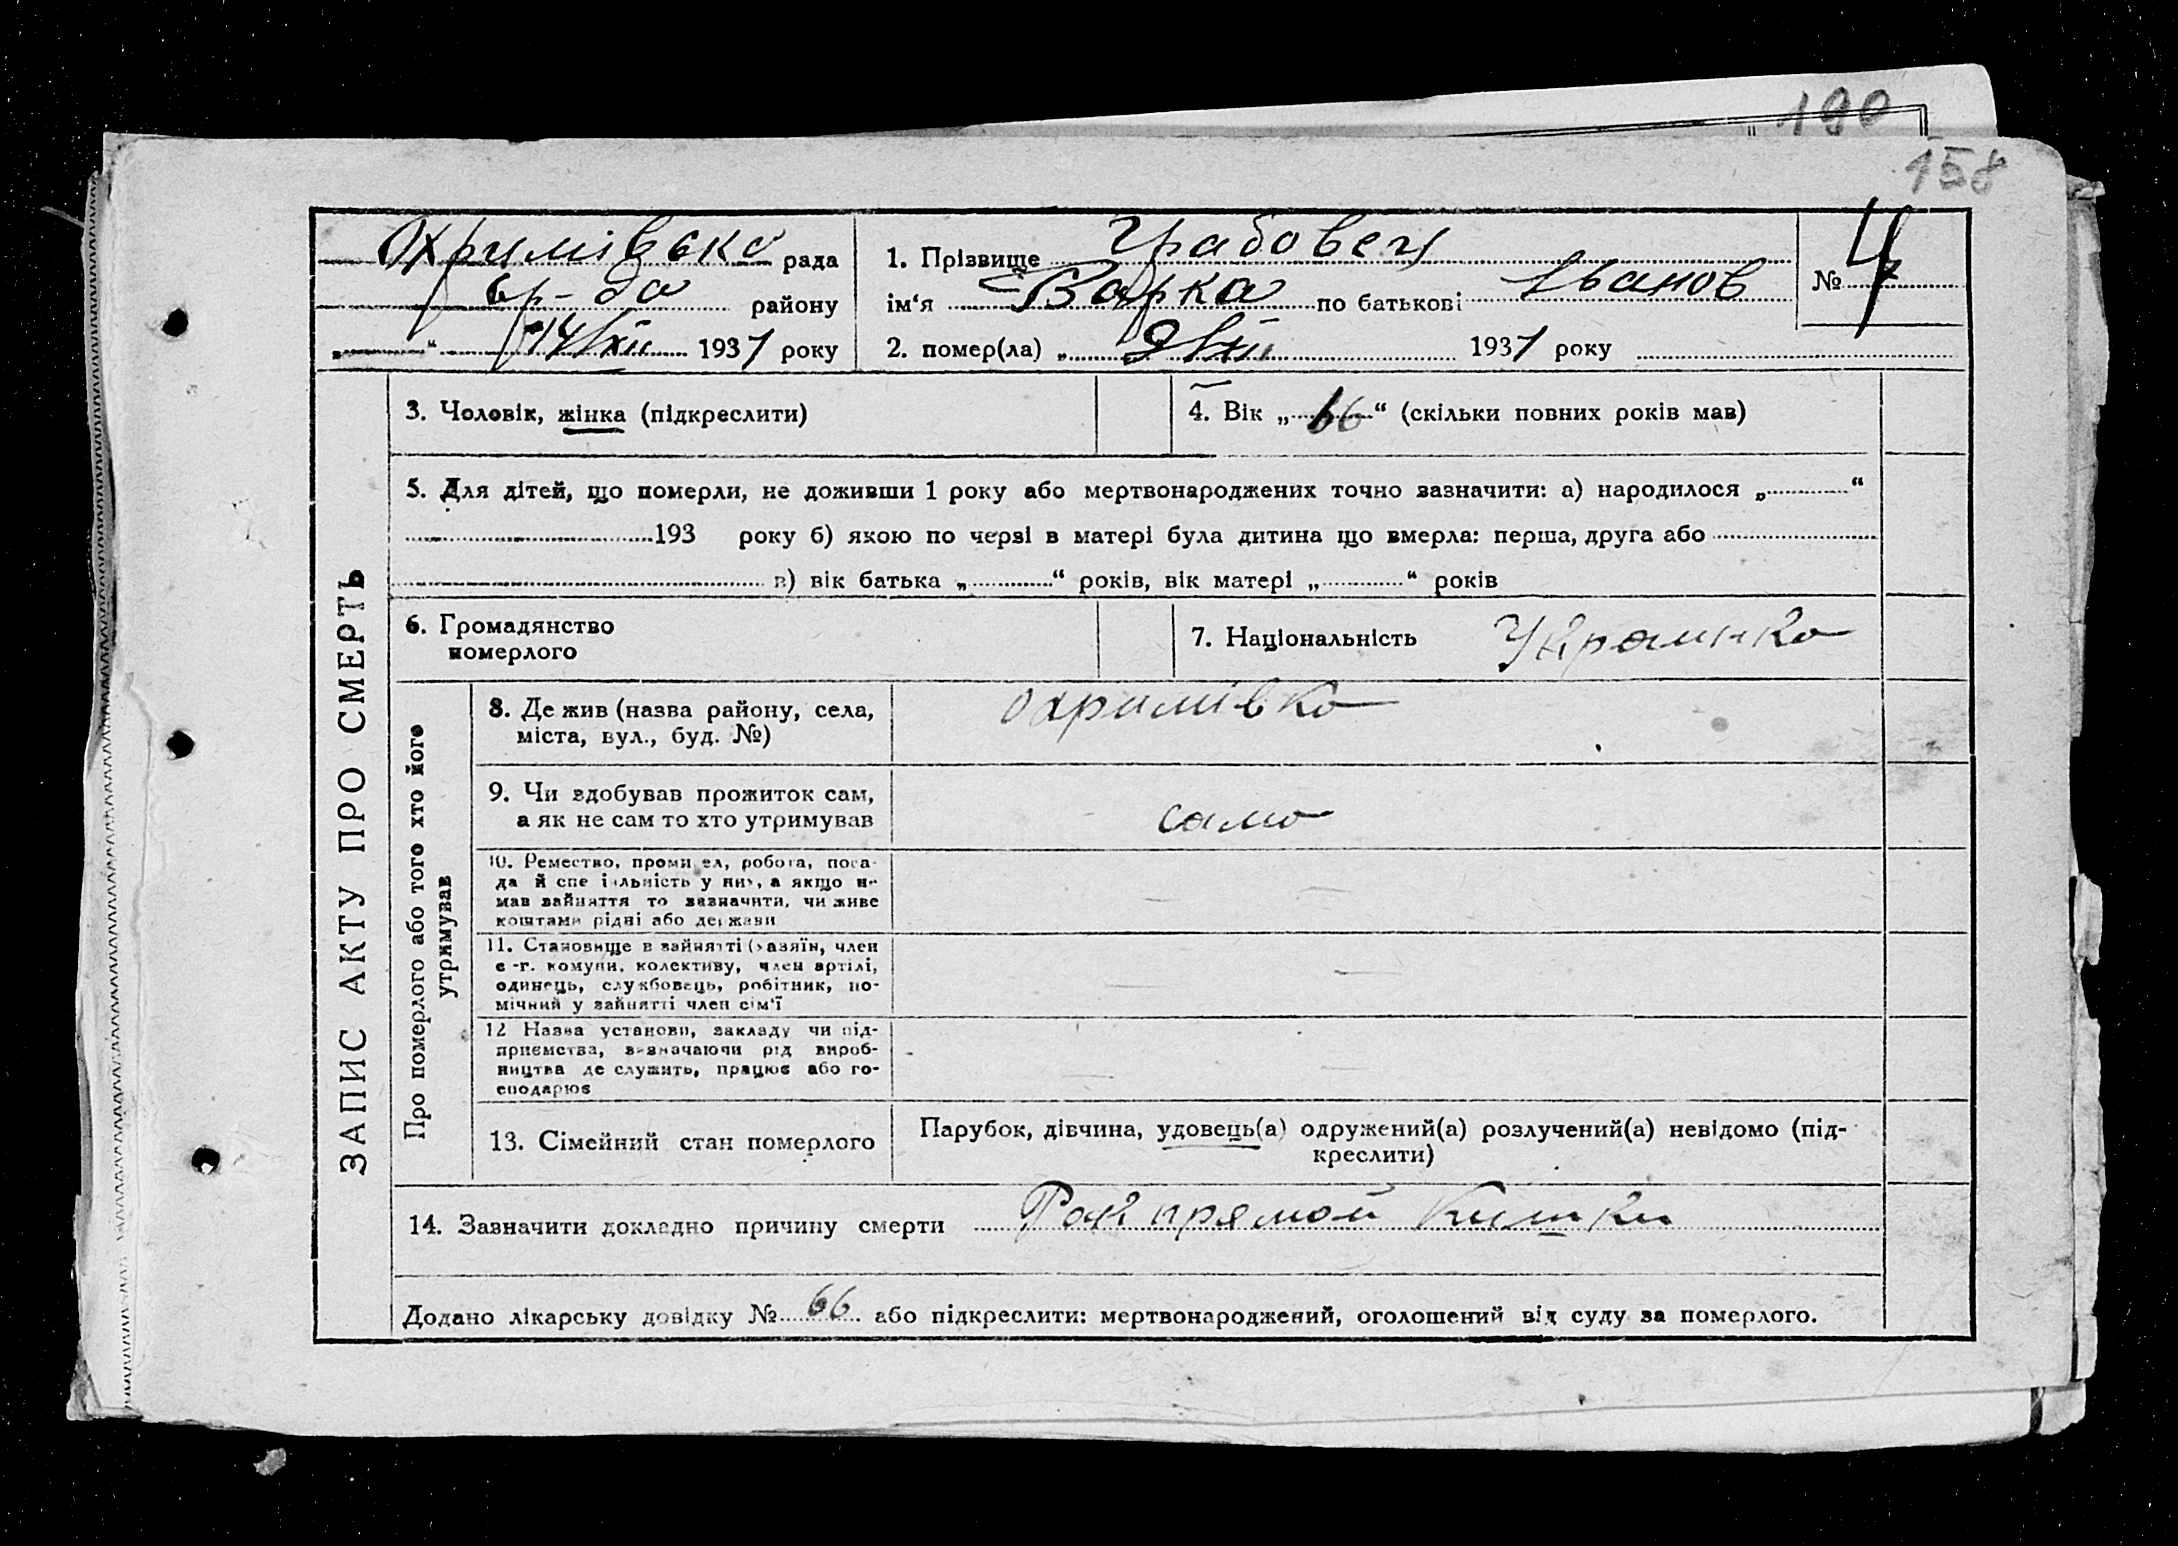 190
158
Охримівська рада
району
14/XII 1931 року
1. Прізвище Грабовец
ім'я Варка по батькові Иванов
№ 4
2. помер(ла) „ 9/XII 1931 року
ЗАПИС АКТУ ПРО СМЕРТЬ
3. Чоловік, жінка (підкреслити)
4. Вік „ 66 “ (скільки повних років мав)
5. Для дітей, що померли, не доживши 1 року або мертвонароджених точно зазначити: а) народилося „ “
193 року б) якою по черзі в матері була дитина що вмерла: перша, друга або
в) вік батька „ “ років, вік матері „ “ років
6. Громадянство
померлого
7. Національність Украинка
Про померлого або того хто його
утримував
8. Де жив (назва району, села,
міста, вул., буд. №)
Охримівка
9. Чи здобував прожиток сам,
а як не сам то хто утримував
сама
10. Ремество, промисел, робота, поса-
да й спеціальність у них, а якщо не
мав зайняття то зазначити, чи живе
коштами рідні або держави
11. Становище в зайнятті (хазяїн, член
с.-г. комуни, колективу, член артілі,
одинець, службовець, робітник, по-
мічний у зайнятті член сім'ї
12 Назва установи, закладу чи під-
приємства, зазначаючи рід вироб-
ництва де служить, працює або го-
сподарює
13. Сімейний стан померлого
Парубок, дівчина, удовець(а) одружений(а) розлучений(а) невідомо (під-
креслити)
14. Зазначити докладно причину смерти Рак прямой кишки
Додано лікарську довідку № 66 або підкреслити: мертвонароджений, оголошений від суду за померлого.